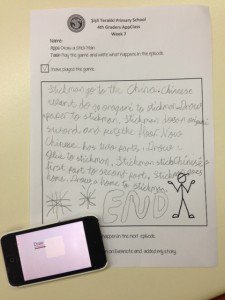 Şişli Terakki Primary School
4th Graders AppClass
Week 7
Name:
App: Draw a Stickman
Task: Play the game and write what happens in the episode.
I have played the game.
Stickman go to the China. Chinese
want do go origami to stickman. Draw
paper to stickman. Stickman does origami
sword and puts the floor. Now
Chinese has two parts. Draw a
glue to stickman. Stickman stick Chinese's
first part to second part. Stickman goes
home. Draw a home to stickman.
END
happen in the next episode.
on Evernote and added my story.
Draw